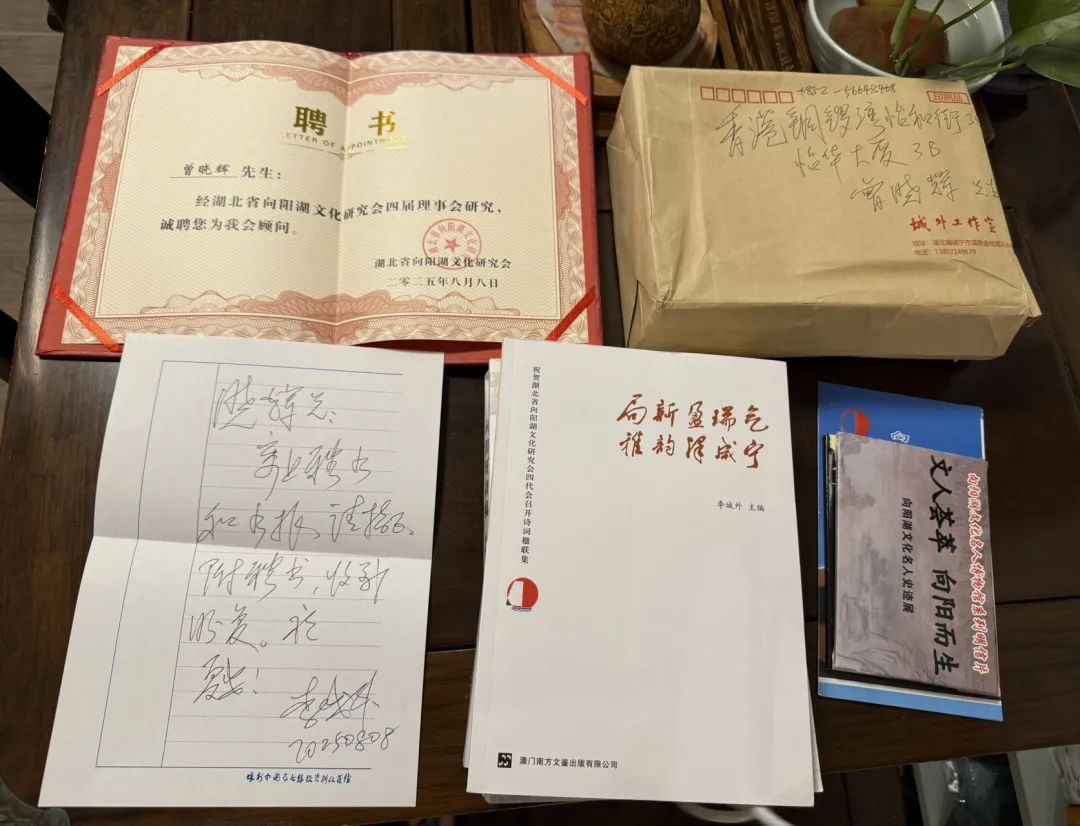 聘 书
ETTER OF APPOINTMENT
曾晓辉 先生：
经湖北省向阳湖文化研究会四届理事会研究，
诚聘您为我会顾问。
湖北省向阳湖文化研究会
二〇二五年八月八日
+852-56648468
印刷品
香港铜锣湾怡和街
怡华大厦 3B
曾晓辉
城外工作室
电话：13807249679
晓辉兄：
寄上聘书
和书报，请指正。
附聘书，收到
盼复。祝
夏安！
李城外
20250808
祝贺湖北省向阳湖文化研究会四代会召开诗词楹联集
气瑞盈新局
宁咸译韵雅
李城外 主编
澳门南方文鉴出版有限公司
向阳湖文化名人博物馆系列明信片
文人荟萃 向阳而生
向阳湖文化名人史迹展